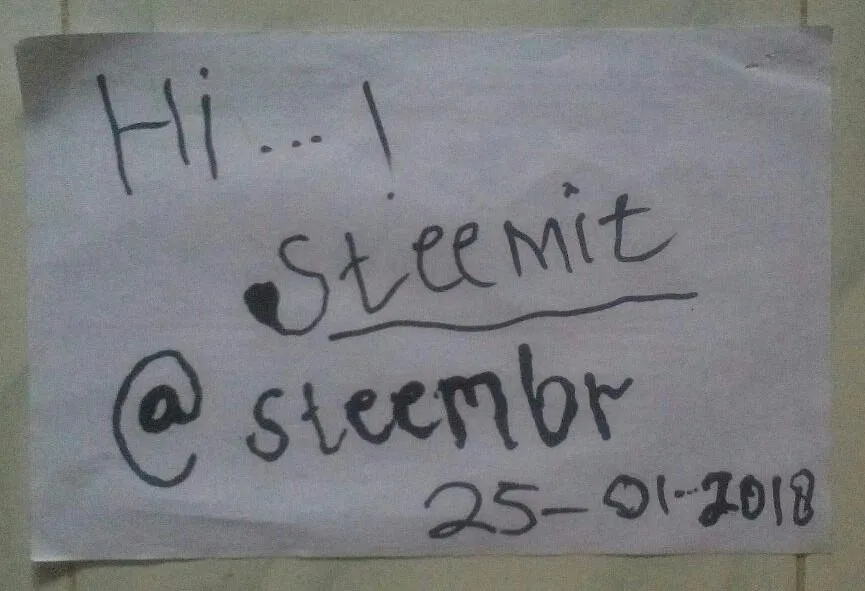 Hi...!
Steemit
@steembr
25-01-2018